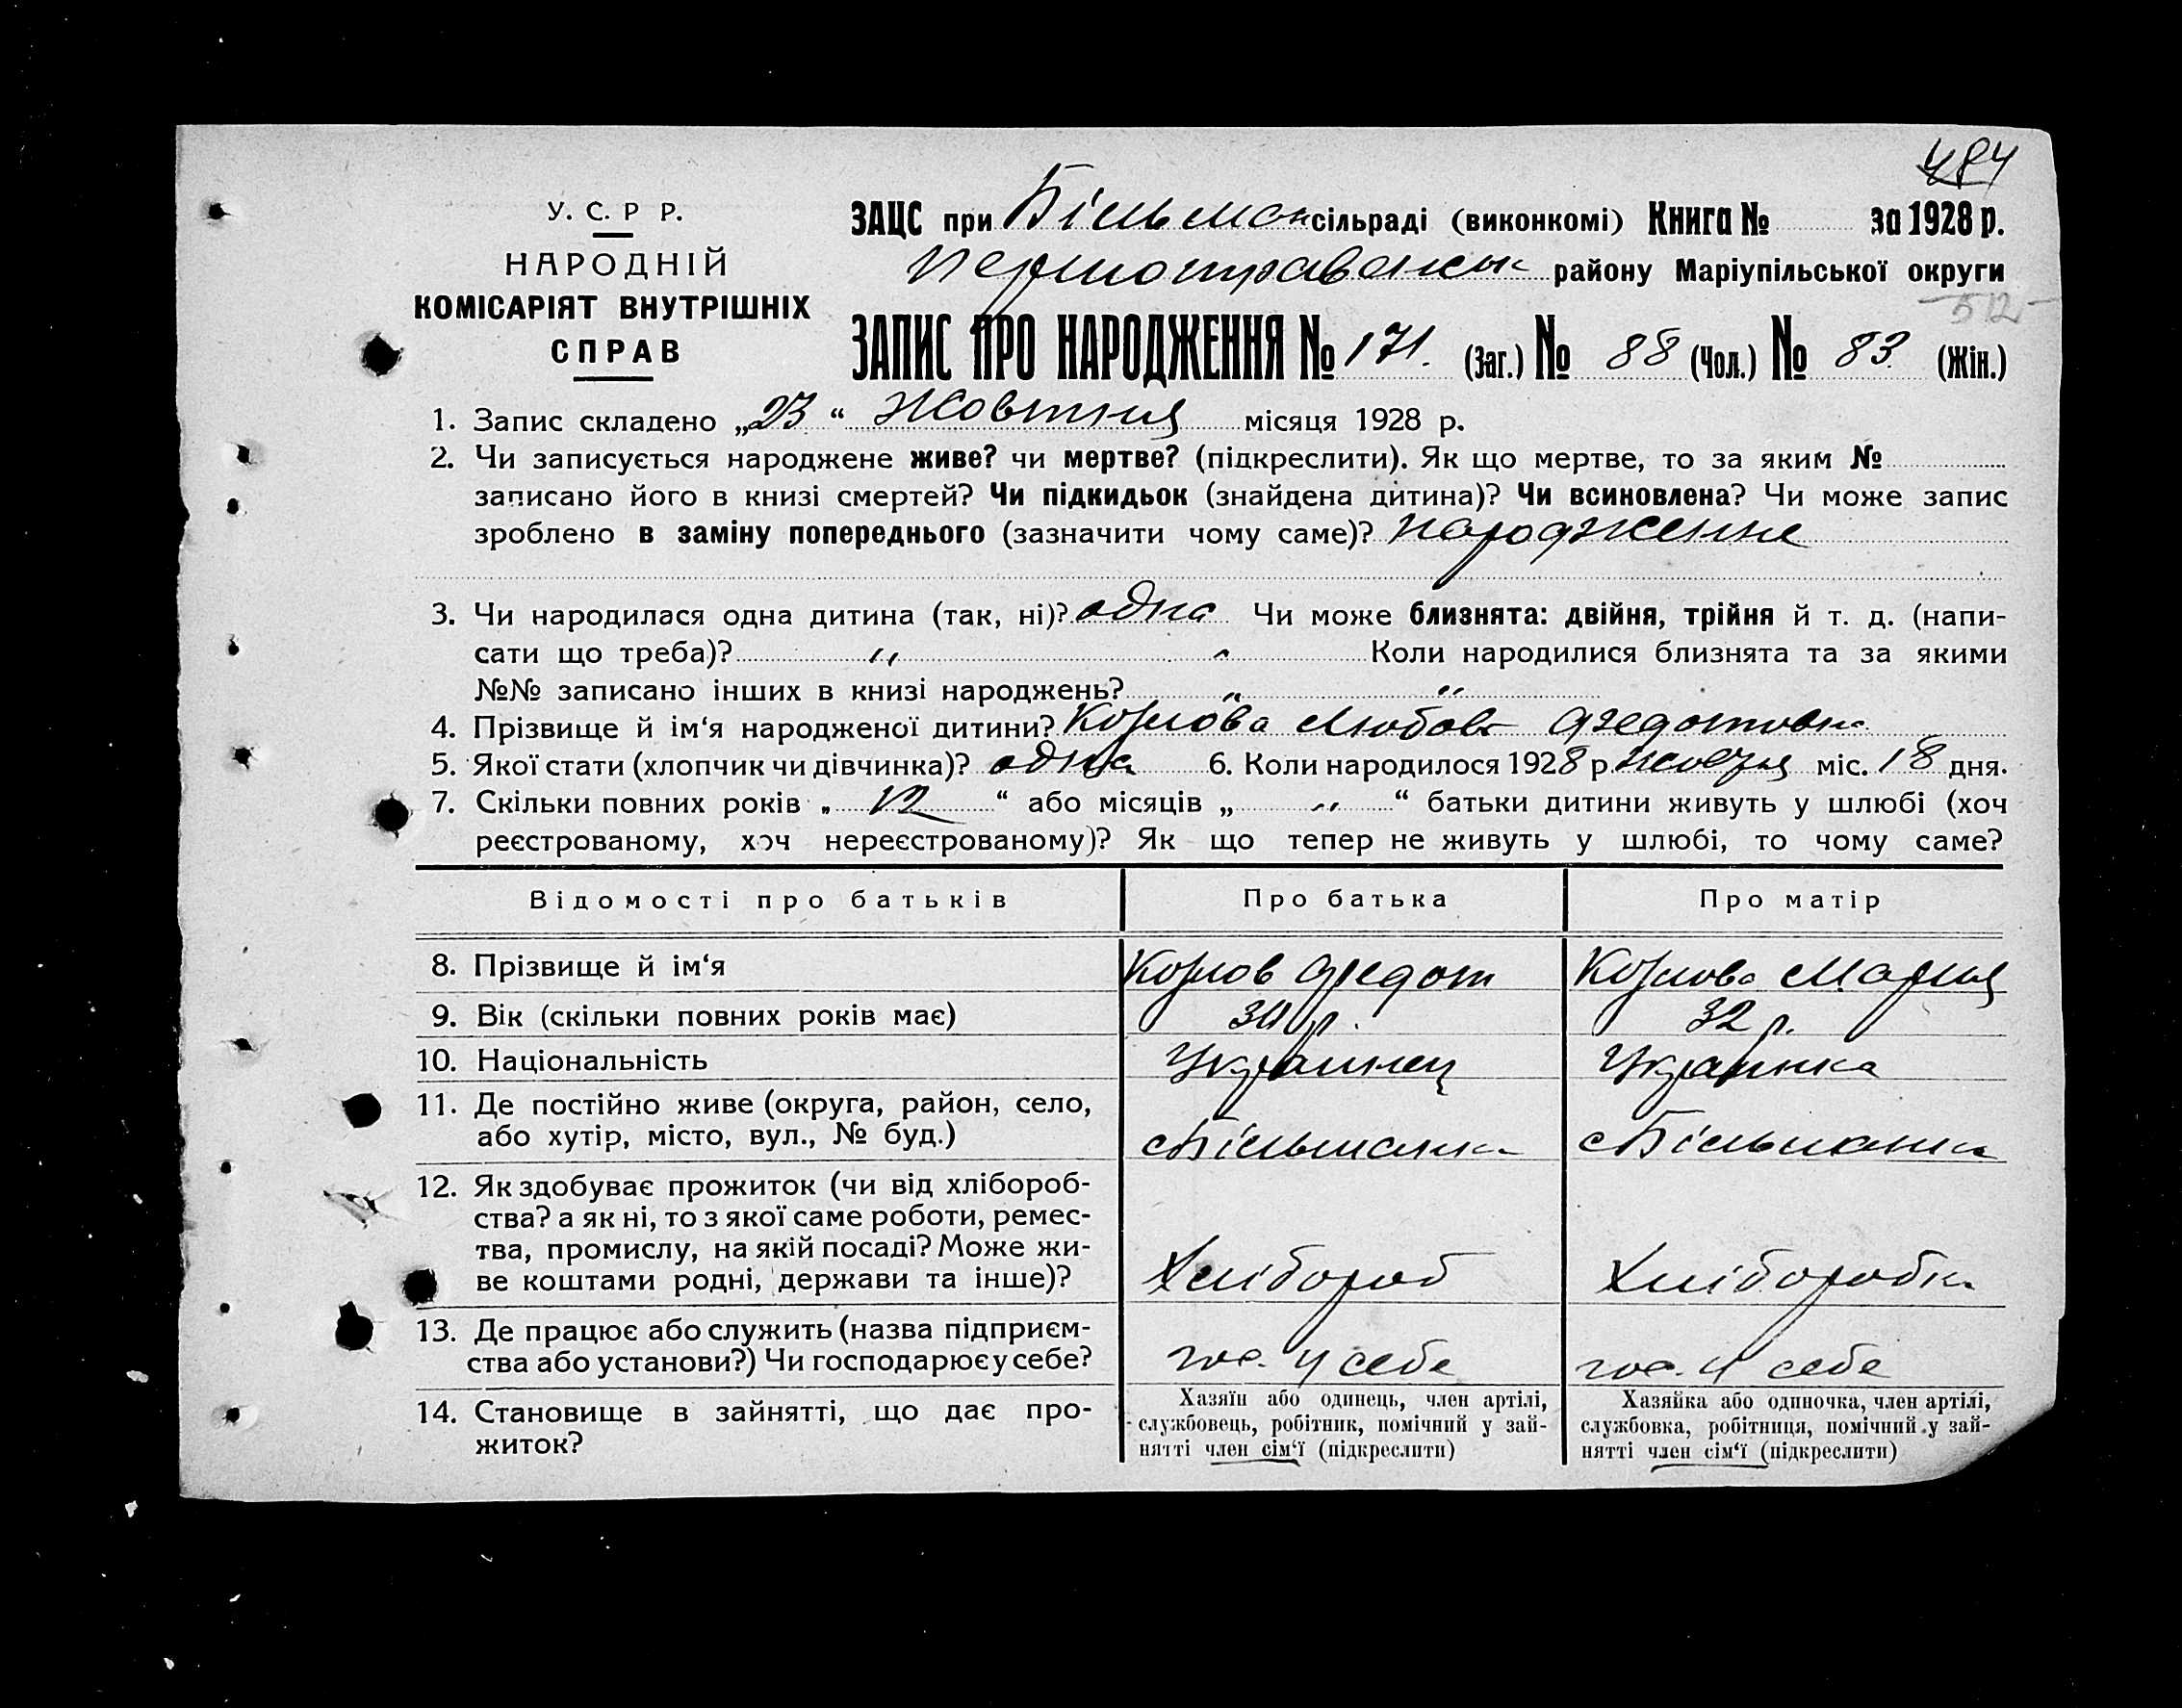 484
У. С. Р Р.
НАРОДНІЙ
КОМІСАРІЯТ ВНУТРІШНІХ
СПРАВ
ЗАЦС при Більман сільраді (виконкомі) Книга № за 1928 р.
району Маріупільської округи
512
ЗАПИС ПРО НАРОДЖЕННЯ № 171. (Заг.) № 88 (Чол.) № 83 (Жін.)
1. Запис складено „23“ Жовтня місяця 1928 р.
2. Чи записується народжене живе? чи мертве? (підкреслити). Як що мертве, то за яким №
записано його в книзі смертей? Чи підкидьок (знайдена дитина)? Чи всиновлена? Чи може запис
зроблено в заміну попереднього (зазначити чому саме)? народження
3. Чи народилася одна дитина (так, ні)? одна Чи може близнята: двійня, трійня й т. д. (напи-
сати що треба)? „ „ Коли народилися близнята та за якими
№№ записано інших в книзі народжень? „ „
4. Прізвище й ім‘я народженої дитини? Козлова Любов Федотовна
5. Якої стати (хлопчик чи дівчинка)? одна 6. Коли народилося 1928 р. міс. 18 дня.
7. Скільки повних років „ 12 “ або місяців „ „ “ батьки дитини живуть у шлюбі (хоч
реєстрованому, хоч нереєстрованому)? Як що тепер не живуть у шлюбі, то чому саме?
Відомості про батьків Про батька Про матір
8. Прізвище й ім‘я Козлов Федот Козлова Мария
9. Вік (скільки повних років має) р. 32 р.
10. Національність Украинец Украинка
11. Де постійно живе (округа, район, село,
або хутір, місто, вул., № буд.) с Більманка с Більманка
12. Як здобуває прожиток (чи від хлібороб-
ства? а як ні, то з якої саме роботи, ремес-
тва, промислу, на якій посаді? Може жи-
ве коштами родні, держави та інше)? Хлібороб Хліборобка
13. Де працює або служить (назва підприєм-
ства або установи?) Чи господарює у себе? гос. у себе гос. у себе
14. Становище в зайнятті, що дає про-
житок?
Хазяїн або одинець, член артілі,
службовець, робітник, помічний у зай-
нятті член сім‘ї (підкреслити)
Хазяйка або одиночка, член артілі,
службовка, робітниця, помічний у зай-
нятті член сім‘ї (підкреслити)